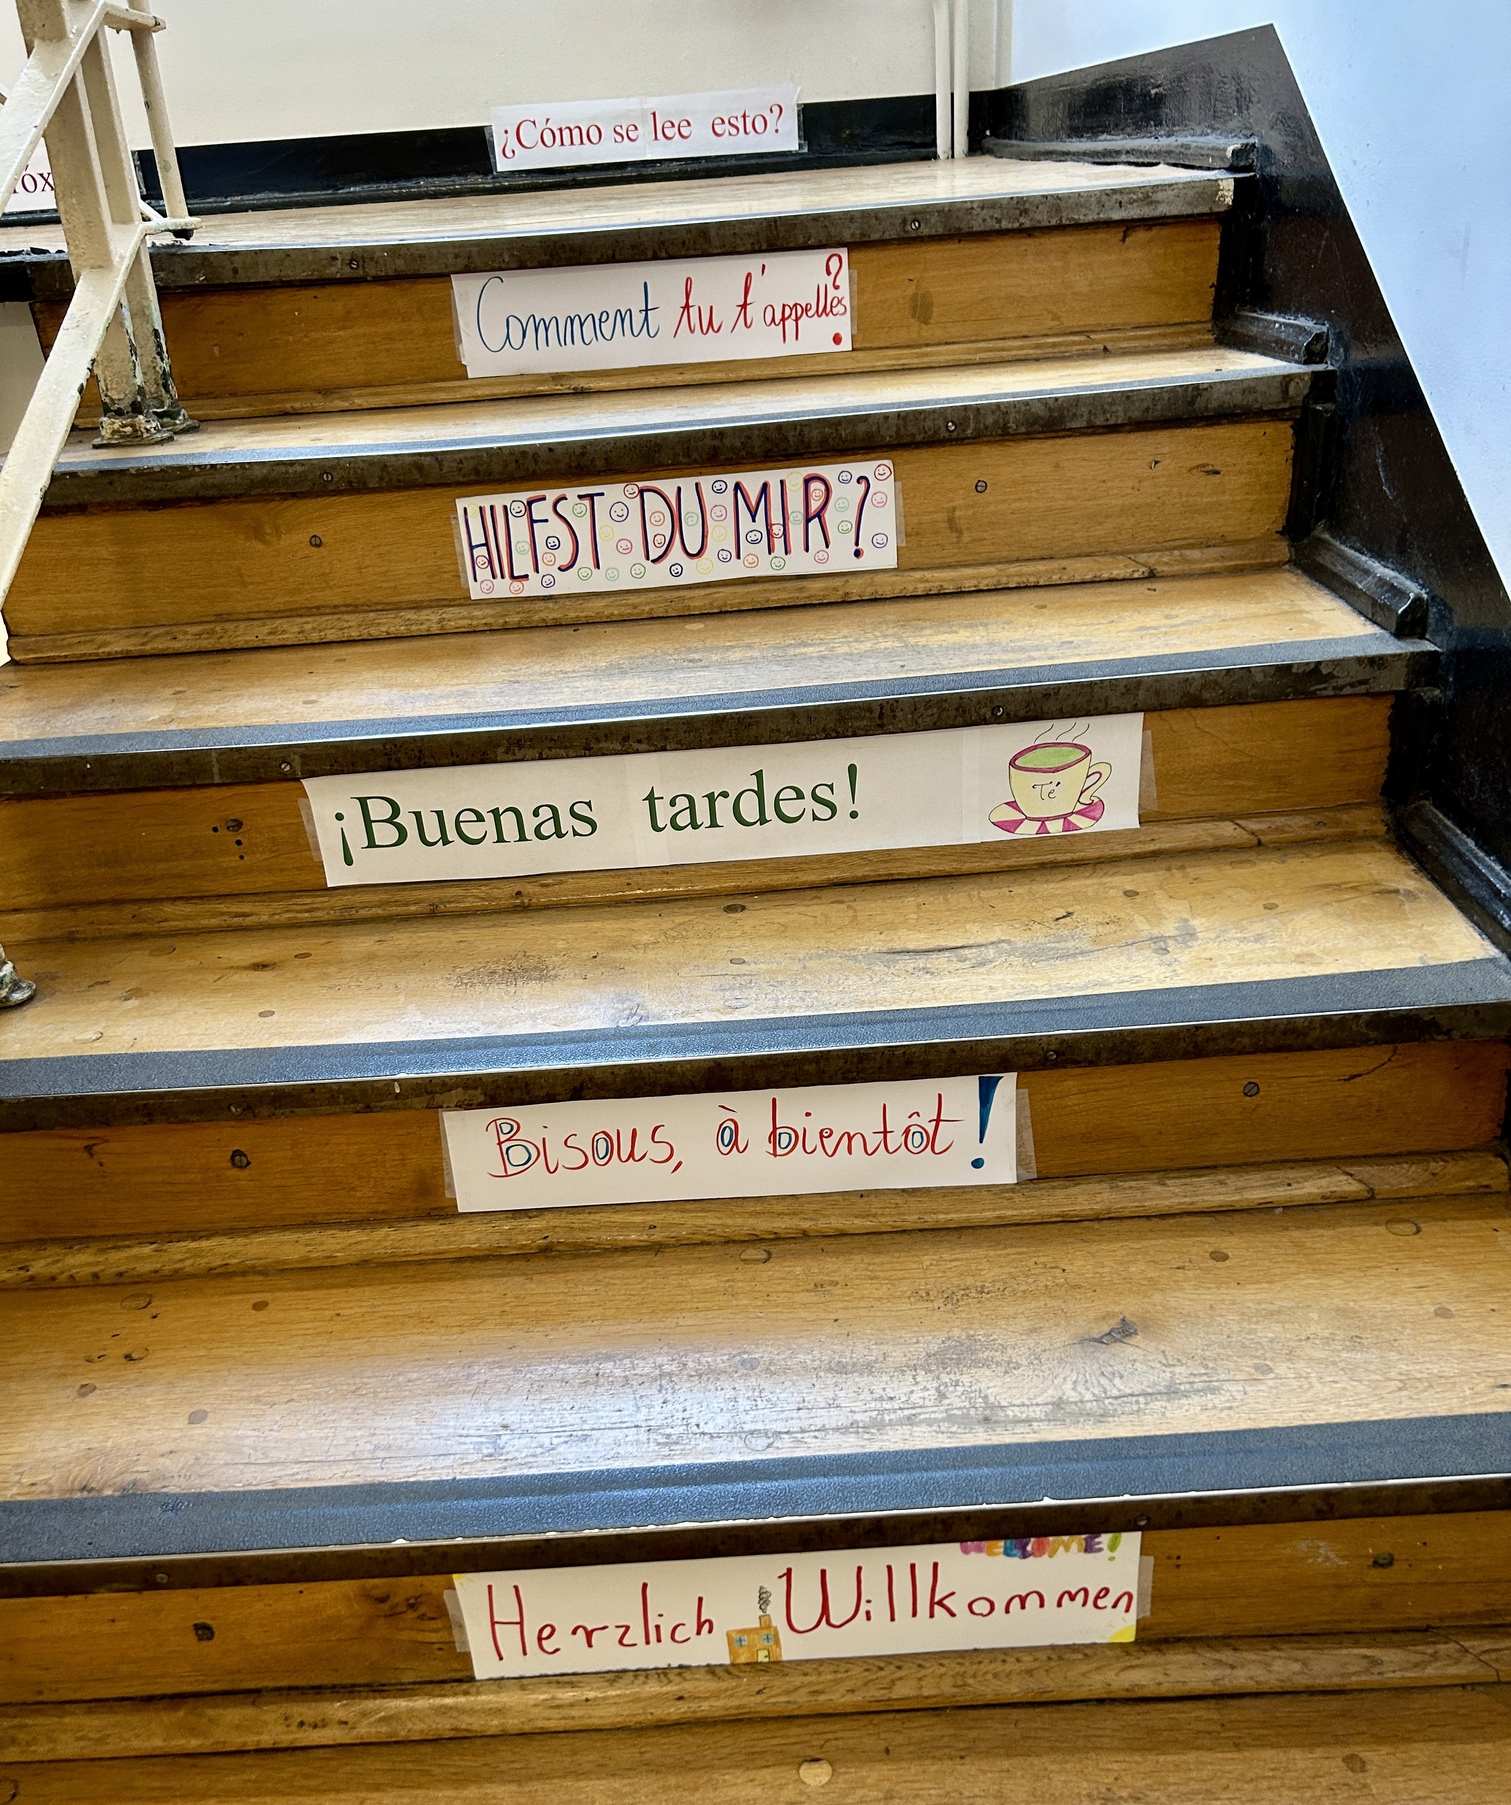 ¿Cómo se lee esto?
Comment tu t'appelles?
HILFST DU MIR?
¡Buenas tardes!
Té
Bisous, à bientôt!
WELCOME!
Herzlich Willkommen